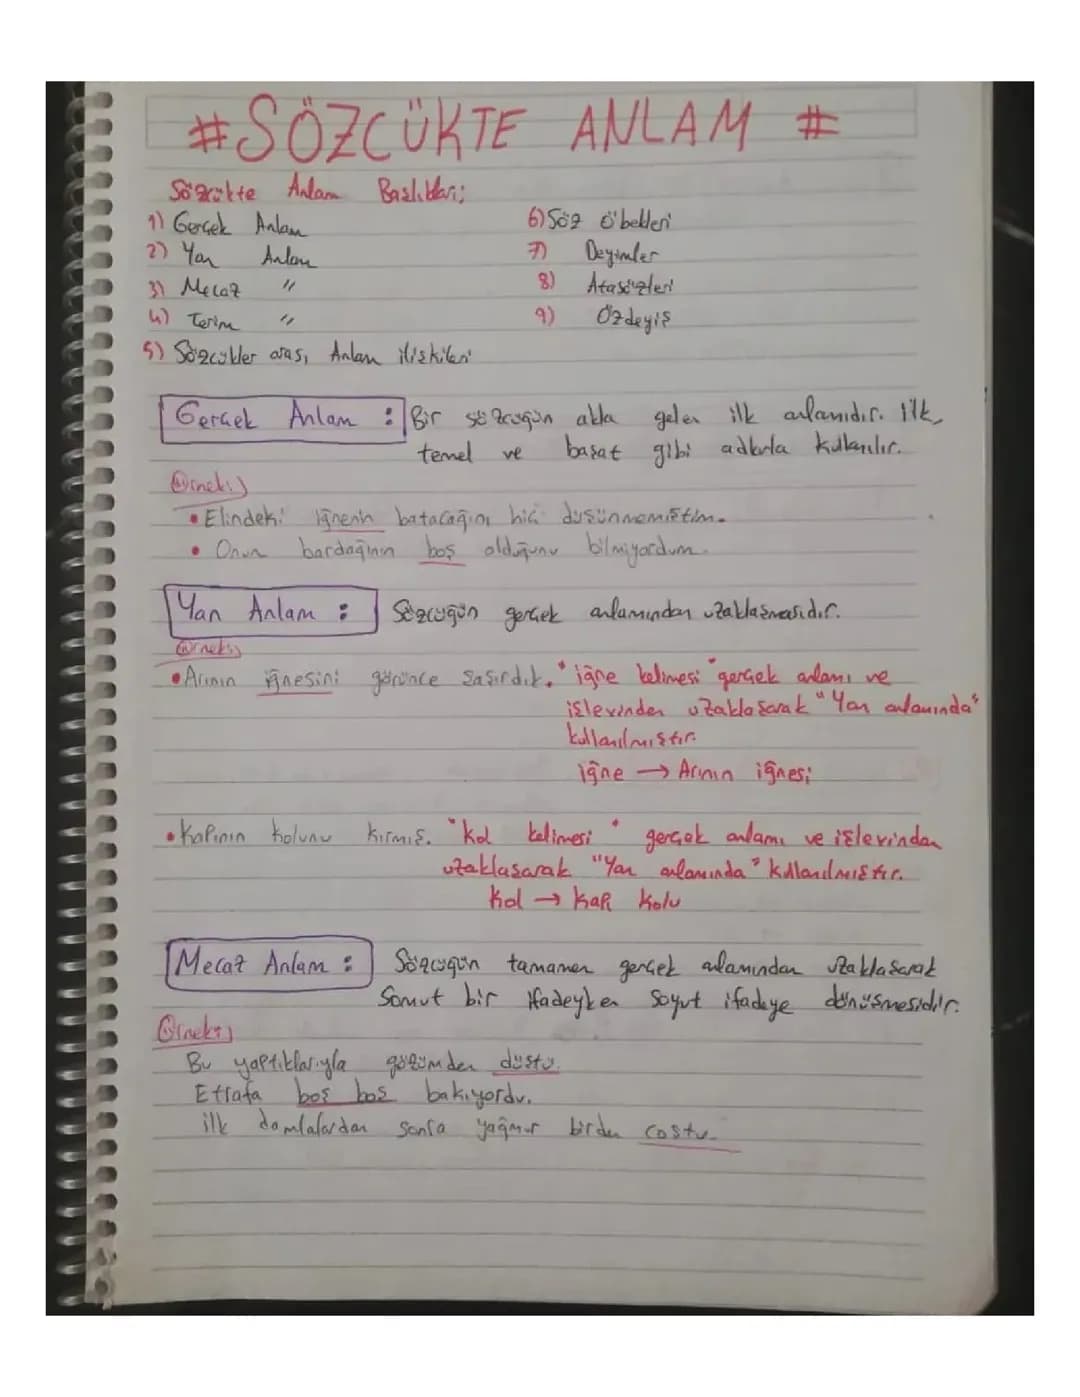 #SÖZCÜKTE ANLAM #
Sözcükte Anlam Başlıkları;
1) Gerçek Anlam
2) Yan Anlam
3) Mecaz "
4) Terim "
5) Sözcükler arası Anlam ilişkileri
6) Söz öbekleri
7) Deyimler
8) Atasözleri
9) Özdeyiş
Gerçek Anlam : Bir sözcüğün akla gelen ilk anlamıdır. İlk,
temel ve başat gibi adlarla kullanılır.
Örnek;
• Elindeki iğnenin batacağını hiç düşünmemiştim.
• Onun bardağının boş olduğunu bilmiyordum.
Yan Anlam : Sözcüğün gerçek anlamından uzaklaşmasıdır.
Örnek;
• Arının iğnesini görünce şaşırdık. "iğne kelimesi" gerçek anlamı ve
işlevinden uzaklaşarak "Yan anlamında"
kullanılmıştır.
iğne → Arının iğnesi
• Kapının kolunu kırmış. "kol kelimesi" gerçek anlamı ve işlevinden
uzaklaşarak "Yan anlamında" kullanılmıştır.
Kol → Kapı Kolu
Mecaz Anlam : Sözcüğün tamamen gerçek anlamından uzaklaşarak
Somut bir ifadeyken Soyut ifadeye dönüşmesidir.
Örnek;
Bu yaptıklarıyla gözümden düştü.
Etrafa boş boş bakıyordu.
ilk damlalardan sonra yağmur birden coştu.